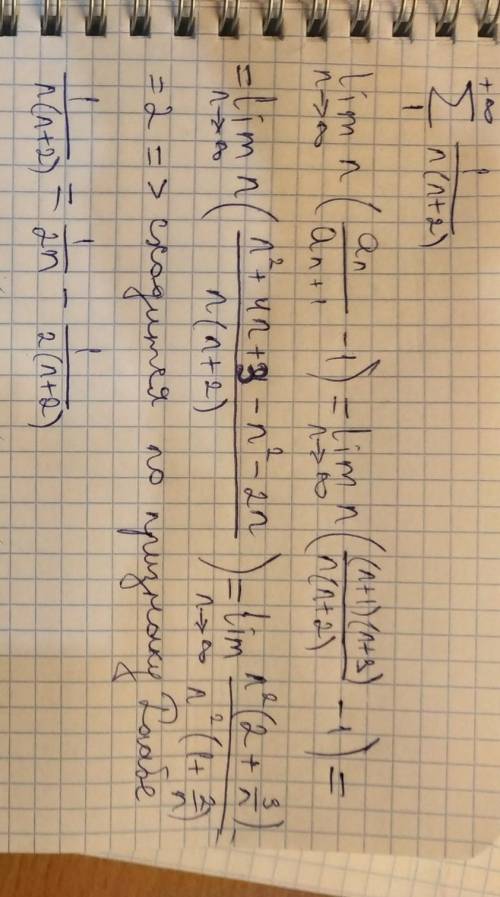 +∞
∑ 1/(n(n+2))
1
lim n→∞ n(aₙ/aₙ₊₁ - 1) = lim n→∞ n((n+1)(n+3)/(n(n+2)) - 1) =
= lim n→∞ n((n²+4n+3-n²-2n)/(n(n+2))) = lim n→∞ n²(2+3/n)/(n²(1+2/n)) =
= 2 => сходится по признаку Раабе
1/(n(n+2)) = 1/(2n) - 1/(2(n+2))